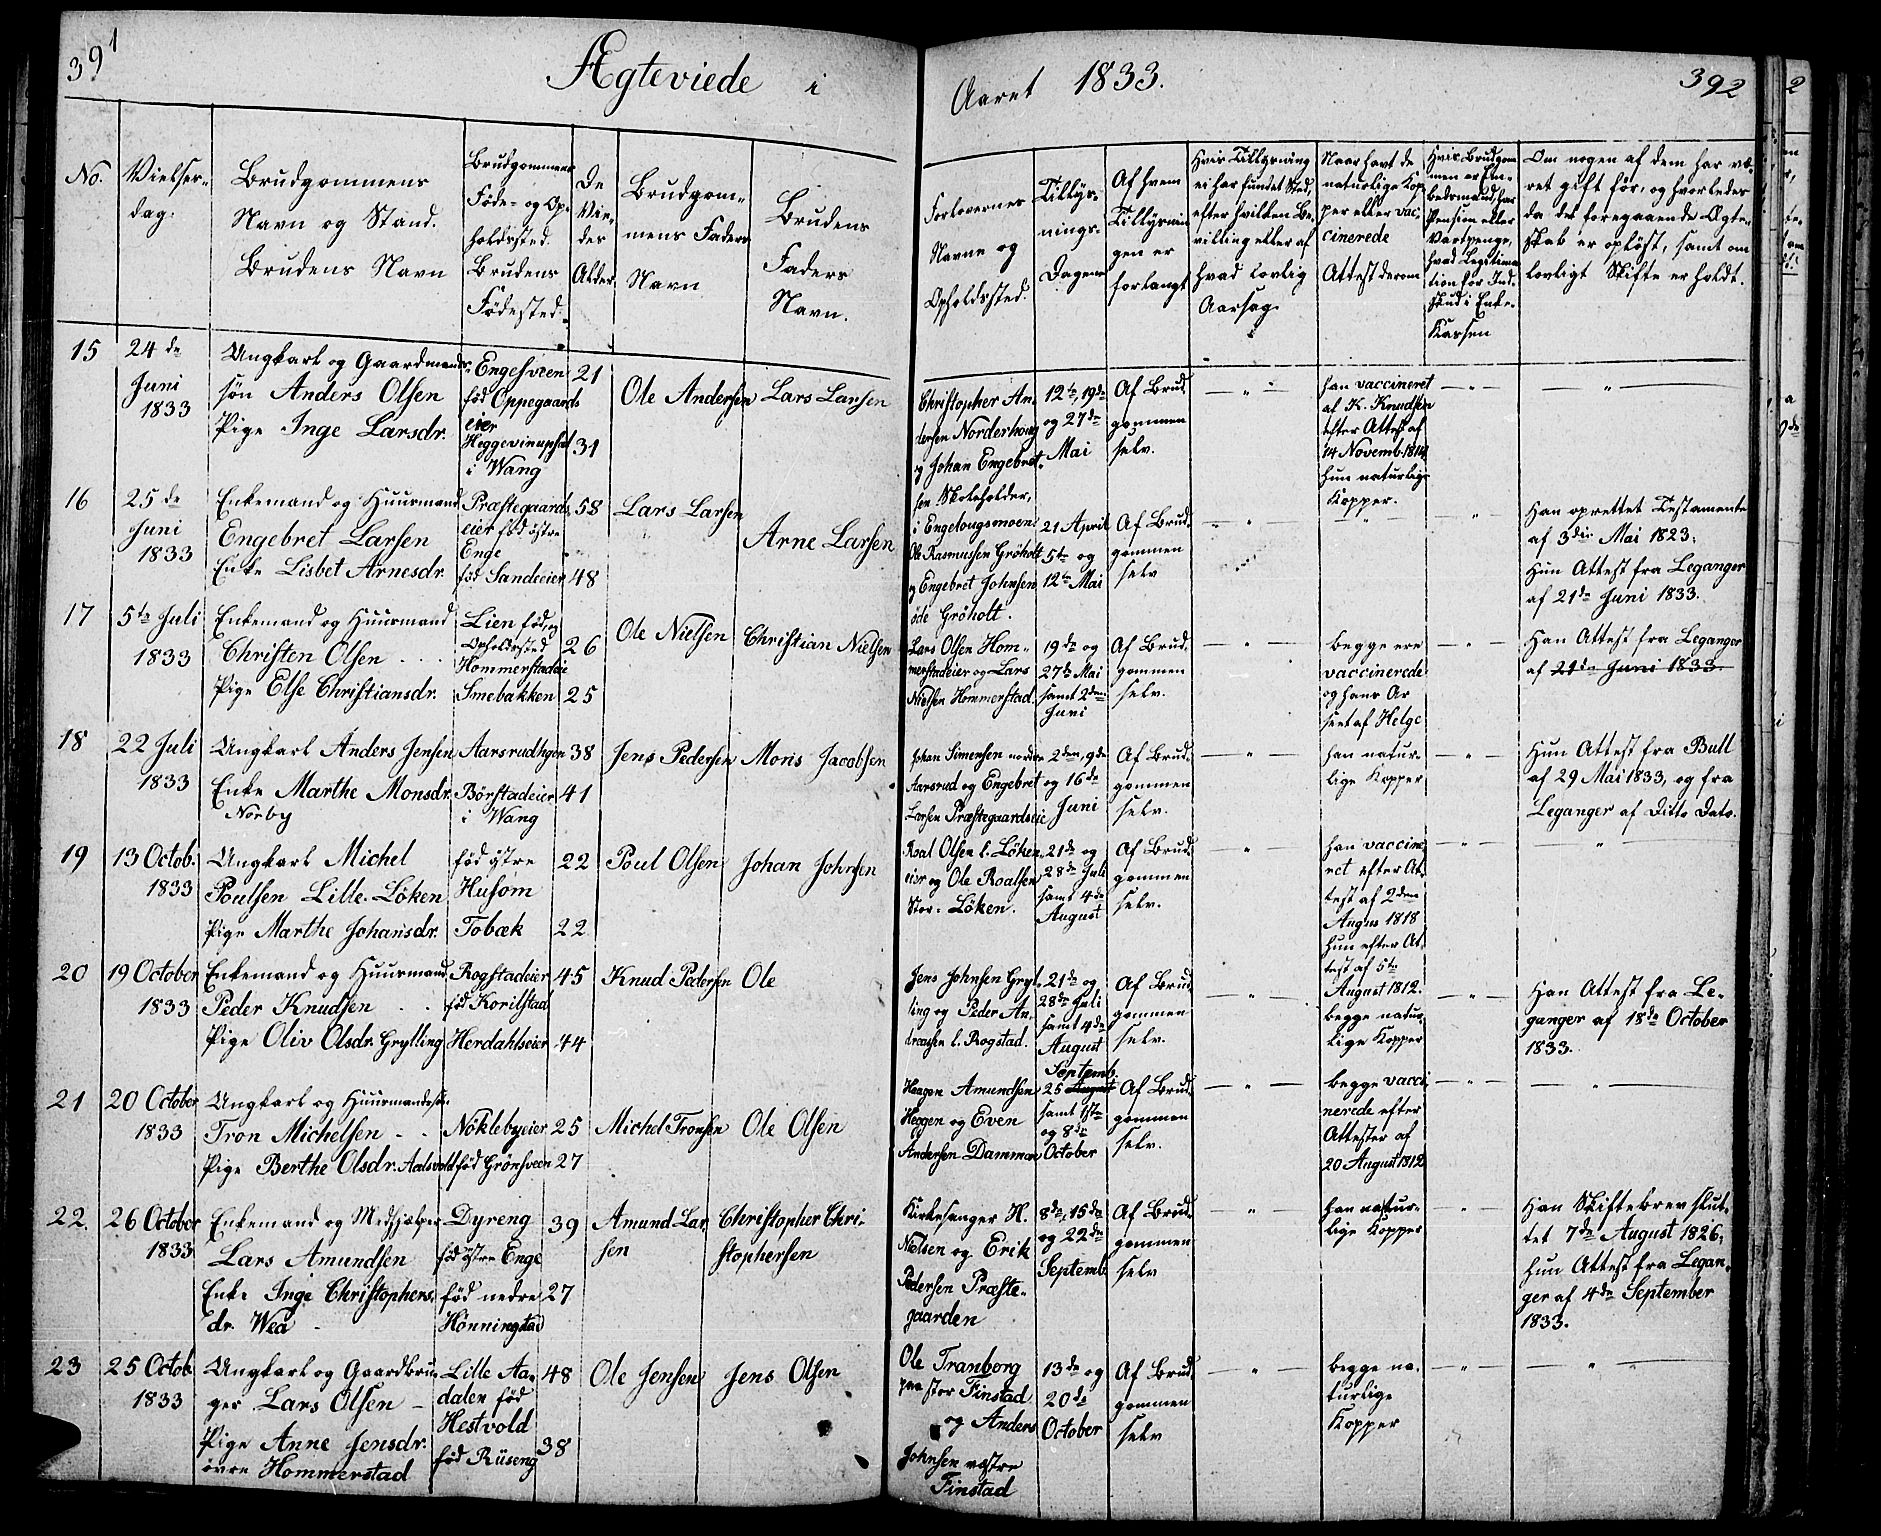 391
Ægteviede i
Aaret 1833.
392
No.
Vielses-
dag.
Brudgommens
Navn og Stand.
Brudens Navn
Brudgommens
Føde- og Op-
holdssted.
Brudens
Fødested.
De
Vie-
des
Alder
Brudgom-
mens Faders
Navn
Brudens
Faders
Navn.
Forlovernes
Navne og
Opholdssted.
Tillys-
nings-
Dagene
Af hvem
Tillysnin
gen er
forlangt
Hvis Tillysning
ei har fundet Sted,
efter hvilken Be-
villing eller af
hvad lovlig
Aarsag
Naar havt de
naturlige Kop
per eller vac-
cinerede
Attest derom
Hvis Brudgom
men er Em-
bedsmand, har
Pension eller
Vartpenge,
hvad Legitima
tion for Ind-
skud i Enke-
Kassen
Om nogen af dem har væ-
ret gift før, og hvorledes
da det foregaaende Ægte-
skab er opløst, samt om
lovligt Skifte er holdt.
15
24de
Juni
1833
Ungkarl og Gaardmands
søn Anders Olsen
Pige Inge Larsdr.
Engesveen
fød Oppegaards
eier
Heggevinuphol
i Wang
21
31
Ole Andersen
Lars Larsen
Christopher An-
dersen Norderhoug
og Johan Engebret-
sen Skoleholder,
i Engelougsmoen
12te, 19de
og 27de
Mai
Af Brud
gommen
selv.
han vaccineret
af K. Knudsen
efter Attest af
14 Novemb. 1814
hun naturlige
Kopper.
16
25de
Juni
1833
Enkemand og Huusmand
Engebret Larsen
Enke Lisbet Arnesdr.
Præstegaards
eier fød østre
Enge
fød Sandeeier
58
48
Lars Larsen
Arne Larsen
Ole Rasmussen Gröholt
og Engebret Johnsen
öde Gröholt.
21 April
5te og
12te Mai
Af Brud-
gommen
selv
Han oprettet Testamente
af 3die Mai 1823.
Hun Attest fra Leganger
af 21de Juni 1833.
17
5te Juli
1833
Enkemand og Huusmand
Christen Olsen
Pige Else Christiansdr.
Lien fød, og
Opholdssted
Hommerstadeie
Smebakken
26
25
Ole Nielsen
Christian Nielsen
Lars Olsen Hom-
merstadeier og Lars
Nielsen Hommerstad.
19de og
27de Mai
samt 2den
Juni
Af Brud-
gommen
selv.
begge ere
vaccinerede
og hans Ar
seet af Helge
Han Attest fra Leganger
af 21de Juni 1833.
18
22 Juli
1833
Ungkarl Anders Jensen
Enke Marthe Monsdr.
Norby
Aarsrudhgen
Börstadeier
i Wang
38
41
Jens Pedersen
Moris Jacobsen
Johan Simensen nordre
Aarsrud og Engebret
Larsen Præstegaardseie
2den, 9de
og 16de
Juni
Af Brud-
gommen
selv.
han natur-
lige Kopper
Hun Attest fra Bull
af 29 Mai 1833, og fra
Leganger af Ditto Dato.
19
13 Octob.
1833
Ungkarl Michel
Poulsen Lille-Löken
Pige Marthe Johansdr.
fød østre
Husom
Tobæk
22
22
Poul Olsen
Johan Johnsen
Roal Olsen l. Löken-
eier og Ole Roalsen
Stor-Löken.
21de og
28de Juli
samt 4de
August
Af Brud
gommen
selv.
han vaccine-
ret efter At-
test af 2den
Augus 1818
hun efter At-
test af 5te
August 1812.
20
19 October
1833
Enkemand og Huusmand
Peder Knudsen
Pige Oliv Olsdr. Grylling
Rogstadeier
fød Korilstad
Herdahlseier
45
44
Knud Pedersen
Ole
Jens Johnsen Gryl-
ling og Peder An-
dreasen l. Rogstad.
21de og
28de Juli
samt 4de
August
Af Brud
gommen
selv.
begge natur-
lige Kopper
Han Attest fra Le-
ganger af 18de October
1833.
21
20 October
1833
Ungkarl og Huusmandssøn
Tron Michelsen
Pige Berthe Olsdr. Aalsvold
Nöklebyeier
fød Grönsveen
25
27
Michel Tronsen
Ole Olsen
Haagen Amundsen
Heggen og Even
Andersen Dammen
Septemb.
25 August
samt 1ste
og 8de
October
Af Brud-
gommen
selv.
begge vacci
nerede efter
Attester af
20 August 1812
22.
26 October
1833
Enkemand og Medhjælper
Lars Amundsen
Enke Inge Christophers-
dr. Wea
Dyreng
fød østre Enge
fød nedre
Hönningstad
39
27
Amund Lar-
sen
Christopher Chri-
stophersen
Kirkesanger H.
Nielsen og Erik
Pedersen Præste-
gaarden
8de, 15de
og 22de
Septemb
Af Brud-
gommen
selv
han natur-
lige Kopper
Han Skiftebrev slut-
tet 7de August 1826.
hun Attest fra Legan-
ger af 4de September
1833.
23
25 Octob.
1833
Ungkarl og Gaardbru-
ger Lars Olsen
Pige Anne Jensdr.
övre Hommerstad
Lille Aa-
dalen fød
Hestvold
fød Rüseng
48
38
Ole Jensen
Jens Olsen
Ole Tranberg
paa stor Finstad
og Anders
Johnsen vestre
Finstad
13de og
20de
October
Af Brud-
gommen
selv
begge na-
turlige
Kopper